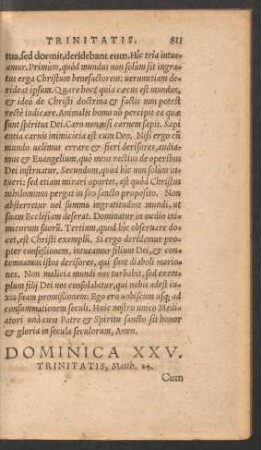 TRINITATIS. 811
tua, sed dormit, deridebant eum. Hîc tria intue-
amur. Primùm, quòd mundus non solùm sit ingra-
tus erga Christum benefactorem: uerumetiam de-
rideat ipsum. Quare hoc? quia cæcus est mundus,
& ideò de Christi doctrina & factis non potest
rectè iudicare. Animalis homo nõ percipit ea quæ
sunt spiritus Dei. Caro non nisi carnem sapit. Sapi-
entia carnis inimicicia est cum Deo. Nisi ergo cũ
mundo uelimus errare & fieri derisores, audia-
mus & Euangelium, quò nos rectius de operibus
Dei instruatur. Secundum, quòd hîc non solùm in-
tueri: sed etiam mirari oportet, est quòd Christus
nihilominus pergit in suo sancto proposito. Non
absterretur uel summa ingratitudine mundi, ut
suam Ecclesiam deserat. Dominatur in medio ini-
micorum suorũ. Tertium, quod hîc obseruare do-
cet, est Christi exemplũ. Si ergo deridemur prop-
ter confessionem, intueamur filium Dei, & con-
temnamus istos derisores, qui sunt diaboli morio-
nes. Non malicia mundi nos turbabit, sed exem-
plum filij Dei nos consolabitur, qui nobis adest iu-
xta suam promissionem: Ego ero uobiscum usq; ad
consummationem seculi. Huic nostro unico Medi-
atori unà cum Patre & Spiritu sancto sit honor
& gloria in secula seculorum, Amen.
DOMINICA XXV.
TRINITATIS, Matth. 24.
Cum